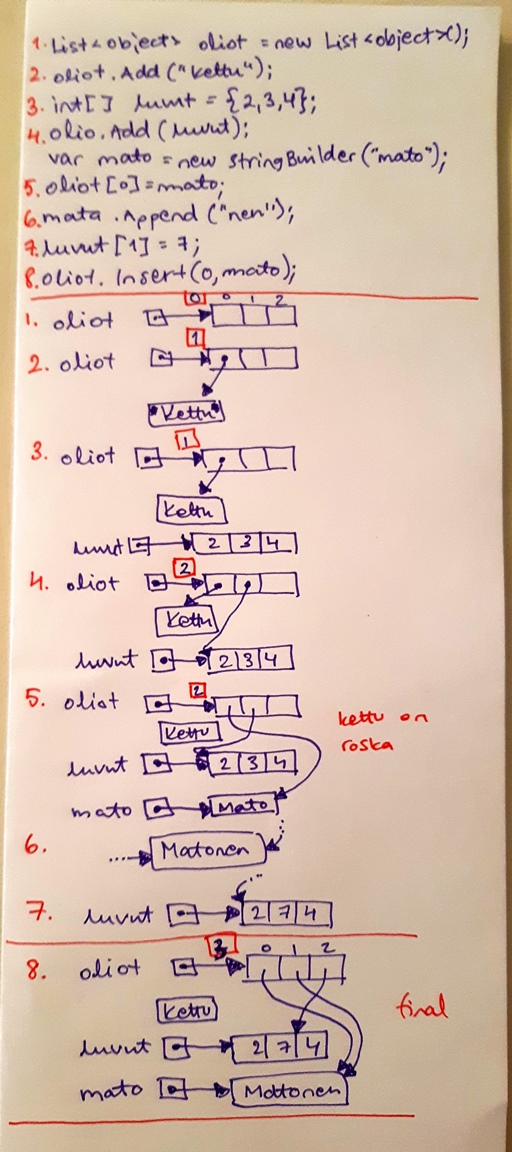 1. List<object> oliot = new List<object>();
2. oliot.Add("Kettu");
3. int[] luvut = {2,3,4};
4. olio.Add(luvut);
var mato = new StringBuilder("mato");
5. oliot[0]=mato;
6. mata.Append("nen");
7. luvut[1] = 7;
8. oliot.Insert(0,mato);
0 0 1 2
1. oliot
1
2. oliot
"Kettu"
1
3. oliot
Kettu
luvut 2 3 4
2
4. oliot
Kettu
luvut 2 3 4
2
5. oliot
kettu on
roska
Kettu
luvut 2 3 4
mato Mato
6. Matonen
7. luvut 2 7 4
3 0 1 2
8. oliot
Kettu
final
luvut 2 7 4
mato Matonen